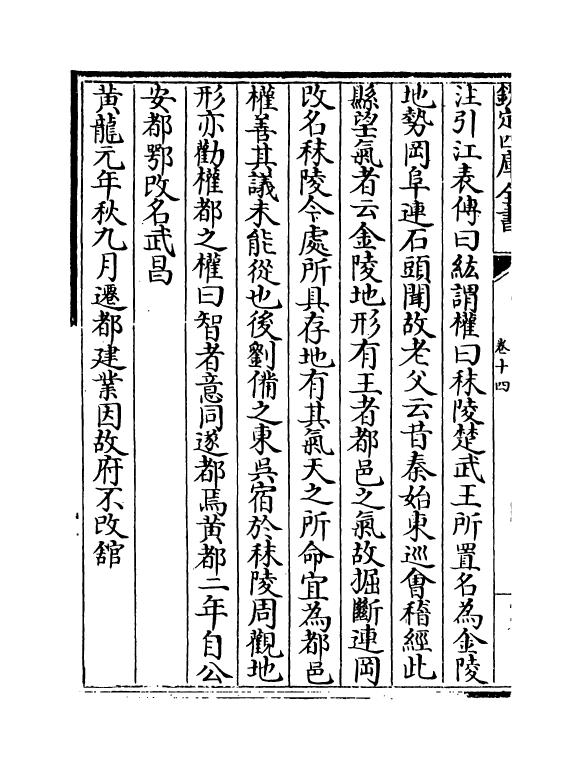 欽定四庫全書
卷十四
注引江表傳曰紘謂權曰秣陵楚武王所置名為金陵
地勢岡阜連石頭聞故老父云昔秦始東巡會稽經此
縣望氣者云金陵地形有王者都邑之氣故掘斷連岡
改名秣陵今處所具存地有其氣天之所命宜為都邑
權善其議未能從也後劉備之東吳宿於秣陵周觀地
形亦勸權都之權曰智者意同遂都焉黃都二年自公
安都鄂改名武昌
黃龍元年秋九月遷都建業因故府不改舘